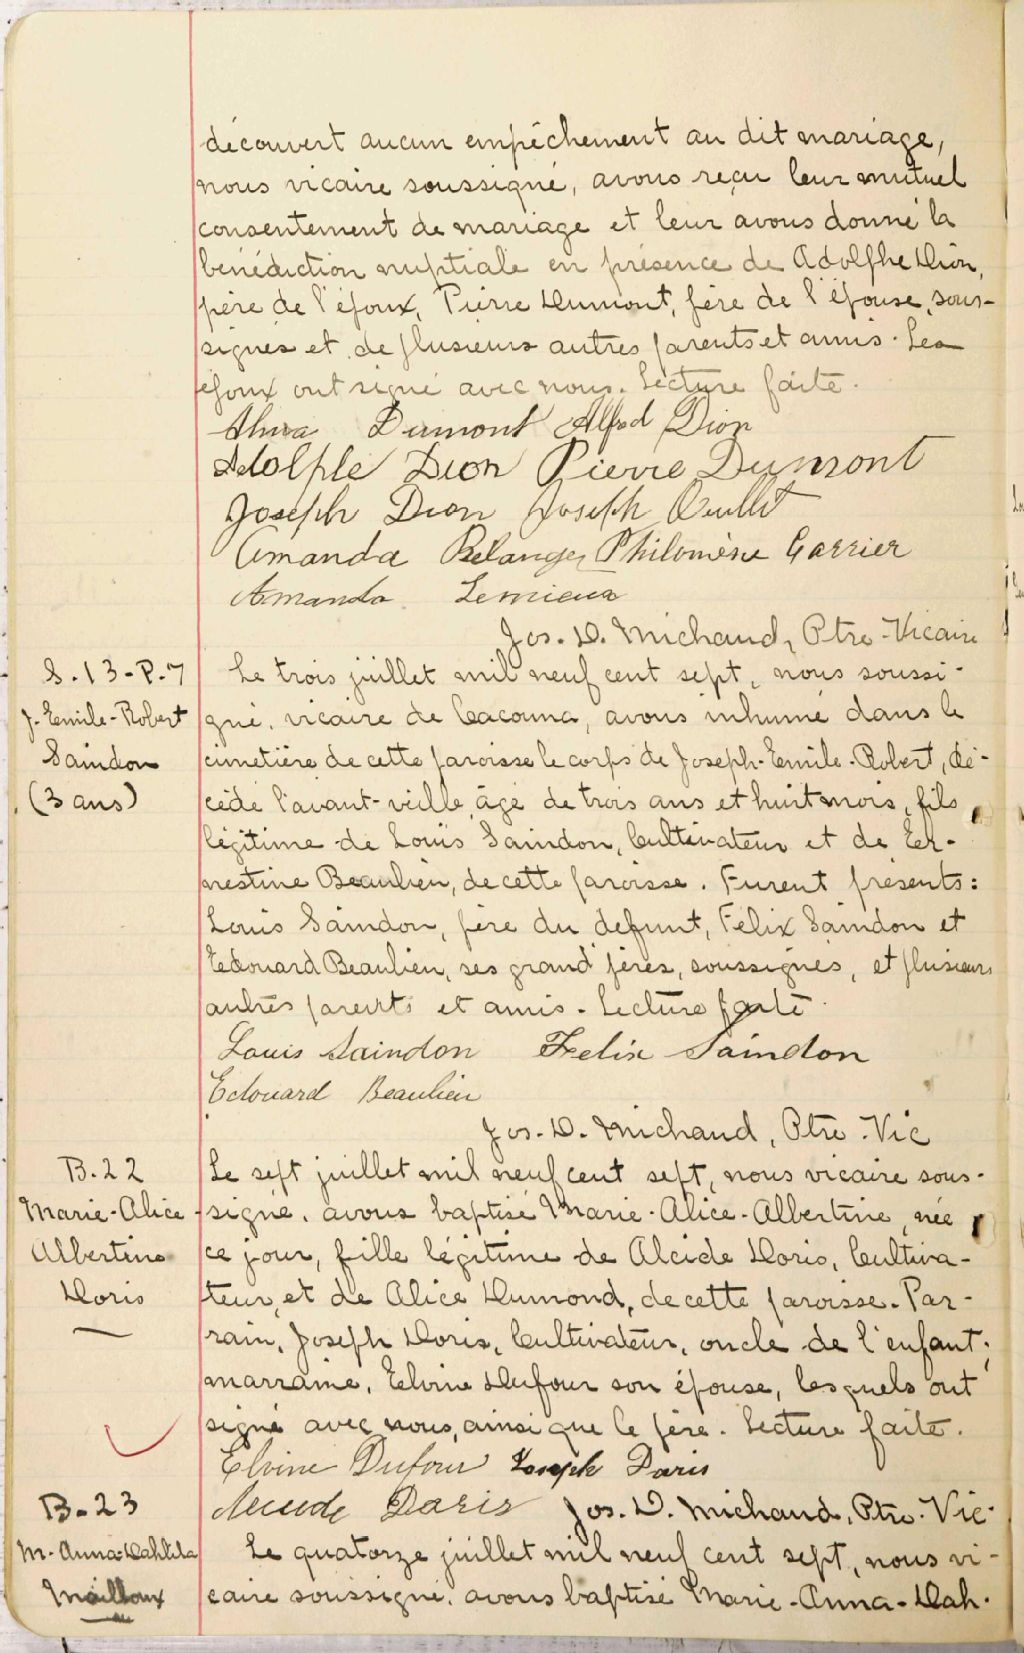 découvert aucun empêchement au dit mariage,
nous vicaire soussigné, avons reçu leur mutuel
consentement de mariage et leur avons donné la
bénédiction nuptiale en présence de Adolphe Dion,
père de l'époux, Pierre Dumont, père de l'épouse, sous-
signés et de plusieurs autres parents et amis. Les
époux ont signé avec nous. Lecture faite.
Dumont Alfred Dion
Adolphe Dion Pierre Dumont
Joseph Dion Joseph Ouellet
Amanda Belanger Philomène Carrier
Amanda Lemieux
Jos. D. Michaud, Ptre-Vicaire
S.13-P.7
J-Emile-Robert
Saindon
(3 ans)
Le trois juillet mil neuf cent sept, nous soussi-
gné, vicaire de Cacouna, avons inhumé dans le
cimetière de cette paroisse le corps de Joseph-Emile-Robert, dé-
cédé l'avant-veille, âgé de trois ans et huit mois, fils
légitime de Louis Saindon, Cultivateur et de Er-
nestine Beaulieu, de cette paroisse. Furent présents:
Louis Saindon, père du défunt, Félix Saindon et
Edouard Beaulieu, ses grand'pères, soussignés, et plusieurs
autres parents et amis. Lecture faite.
Louis Saindon Felix Saindon
Edouard Beaulieu
Jos. D. Michaud, Ptre. Vic
B.22
Marie-Alice
Albertine
Doris
Le sept juillet mil neuf cent sept, nous vicaire sous-
signé, avons baptisé Marie-Alice-Albertine, née
ce jour, fille légitime de Alcide Doris, Cultiva-
teur, et de Alice Dumond, de cette paroisse. Par-
rain, Joseph Doris, Cultivateur, oncle de l'enfant;
marraine, Elvine Dufour son épouse, lesquels ont
signé avec nous, ainsi que le père. Lecture faite.
Elvine Dufour Joseph Daris
Daris Jos. D. Michaud, Ptre. Vic.
B-23
M-Anna-Dahlila
Mailloux
Le quatorze juillet mil neuf cent sept, nous vi-
caire soussigné, avons baptisé Marie-Anna-Dah-